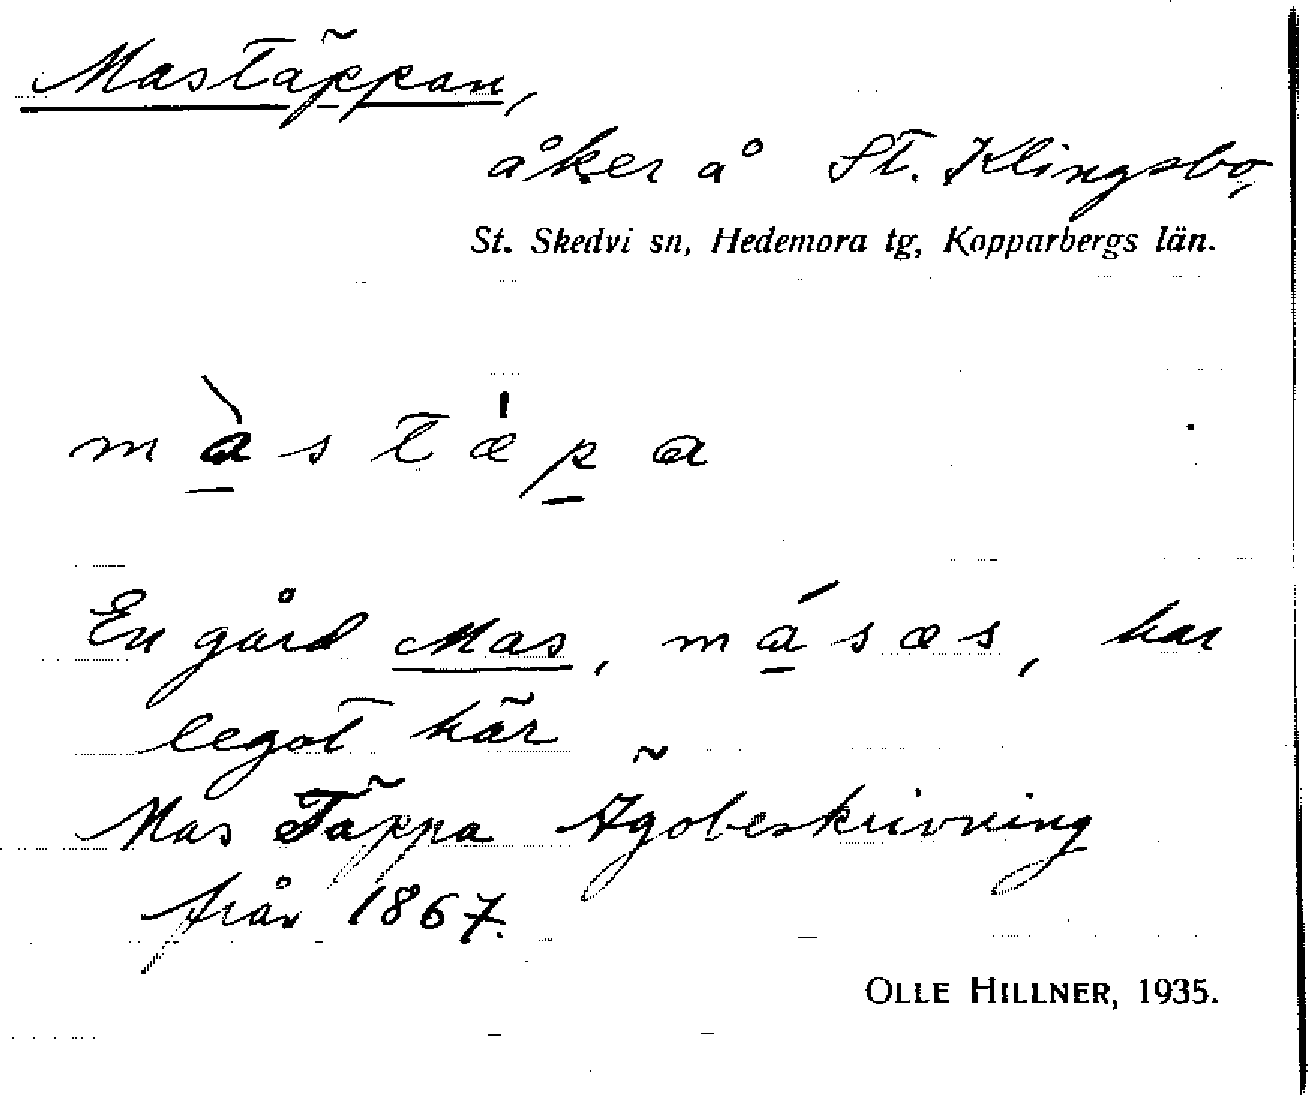 Mastäppan,
åker å St. Klingsbo,
St. Skedvi sn, Hedemora tg, Kopparbergs län.
màstæ̍pa
En gård Mas, másæs, har
legat här
Mas Täppa Ägobeskrivning
från 1867.
OLLE HILLNER, 1935.